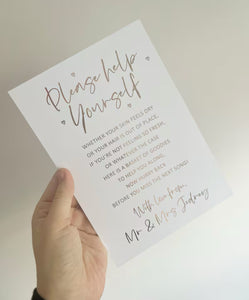 Please help
Yourself
WHETHER YOUR SKIN FEELS DRY
OR YOUR HAIR IS OUT OF PLACE,
IF YOU'RE NOT FEELING SO FRESH,
OR WHATEVER THE CASE
HERE IS A BASKET OF GOODIES
TO HELP YOU ALONG,
NOW HURRY BACK
BEFORE YOU MISS THE NEXT SONG!
With love from,
Mr & Mrs